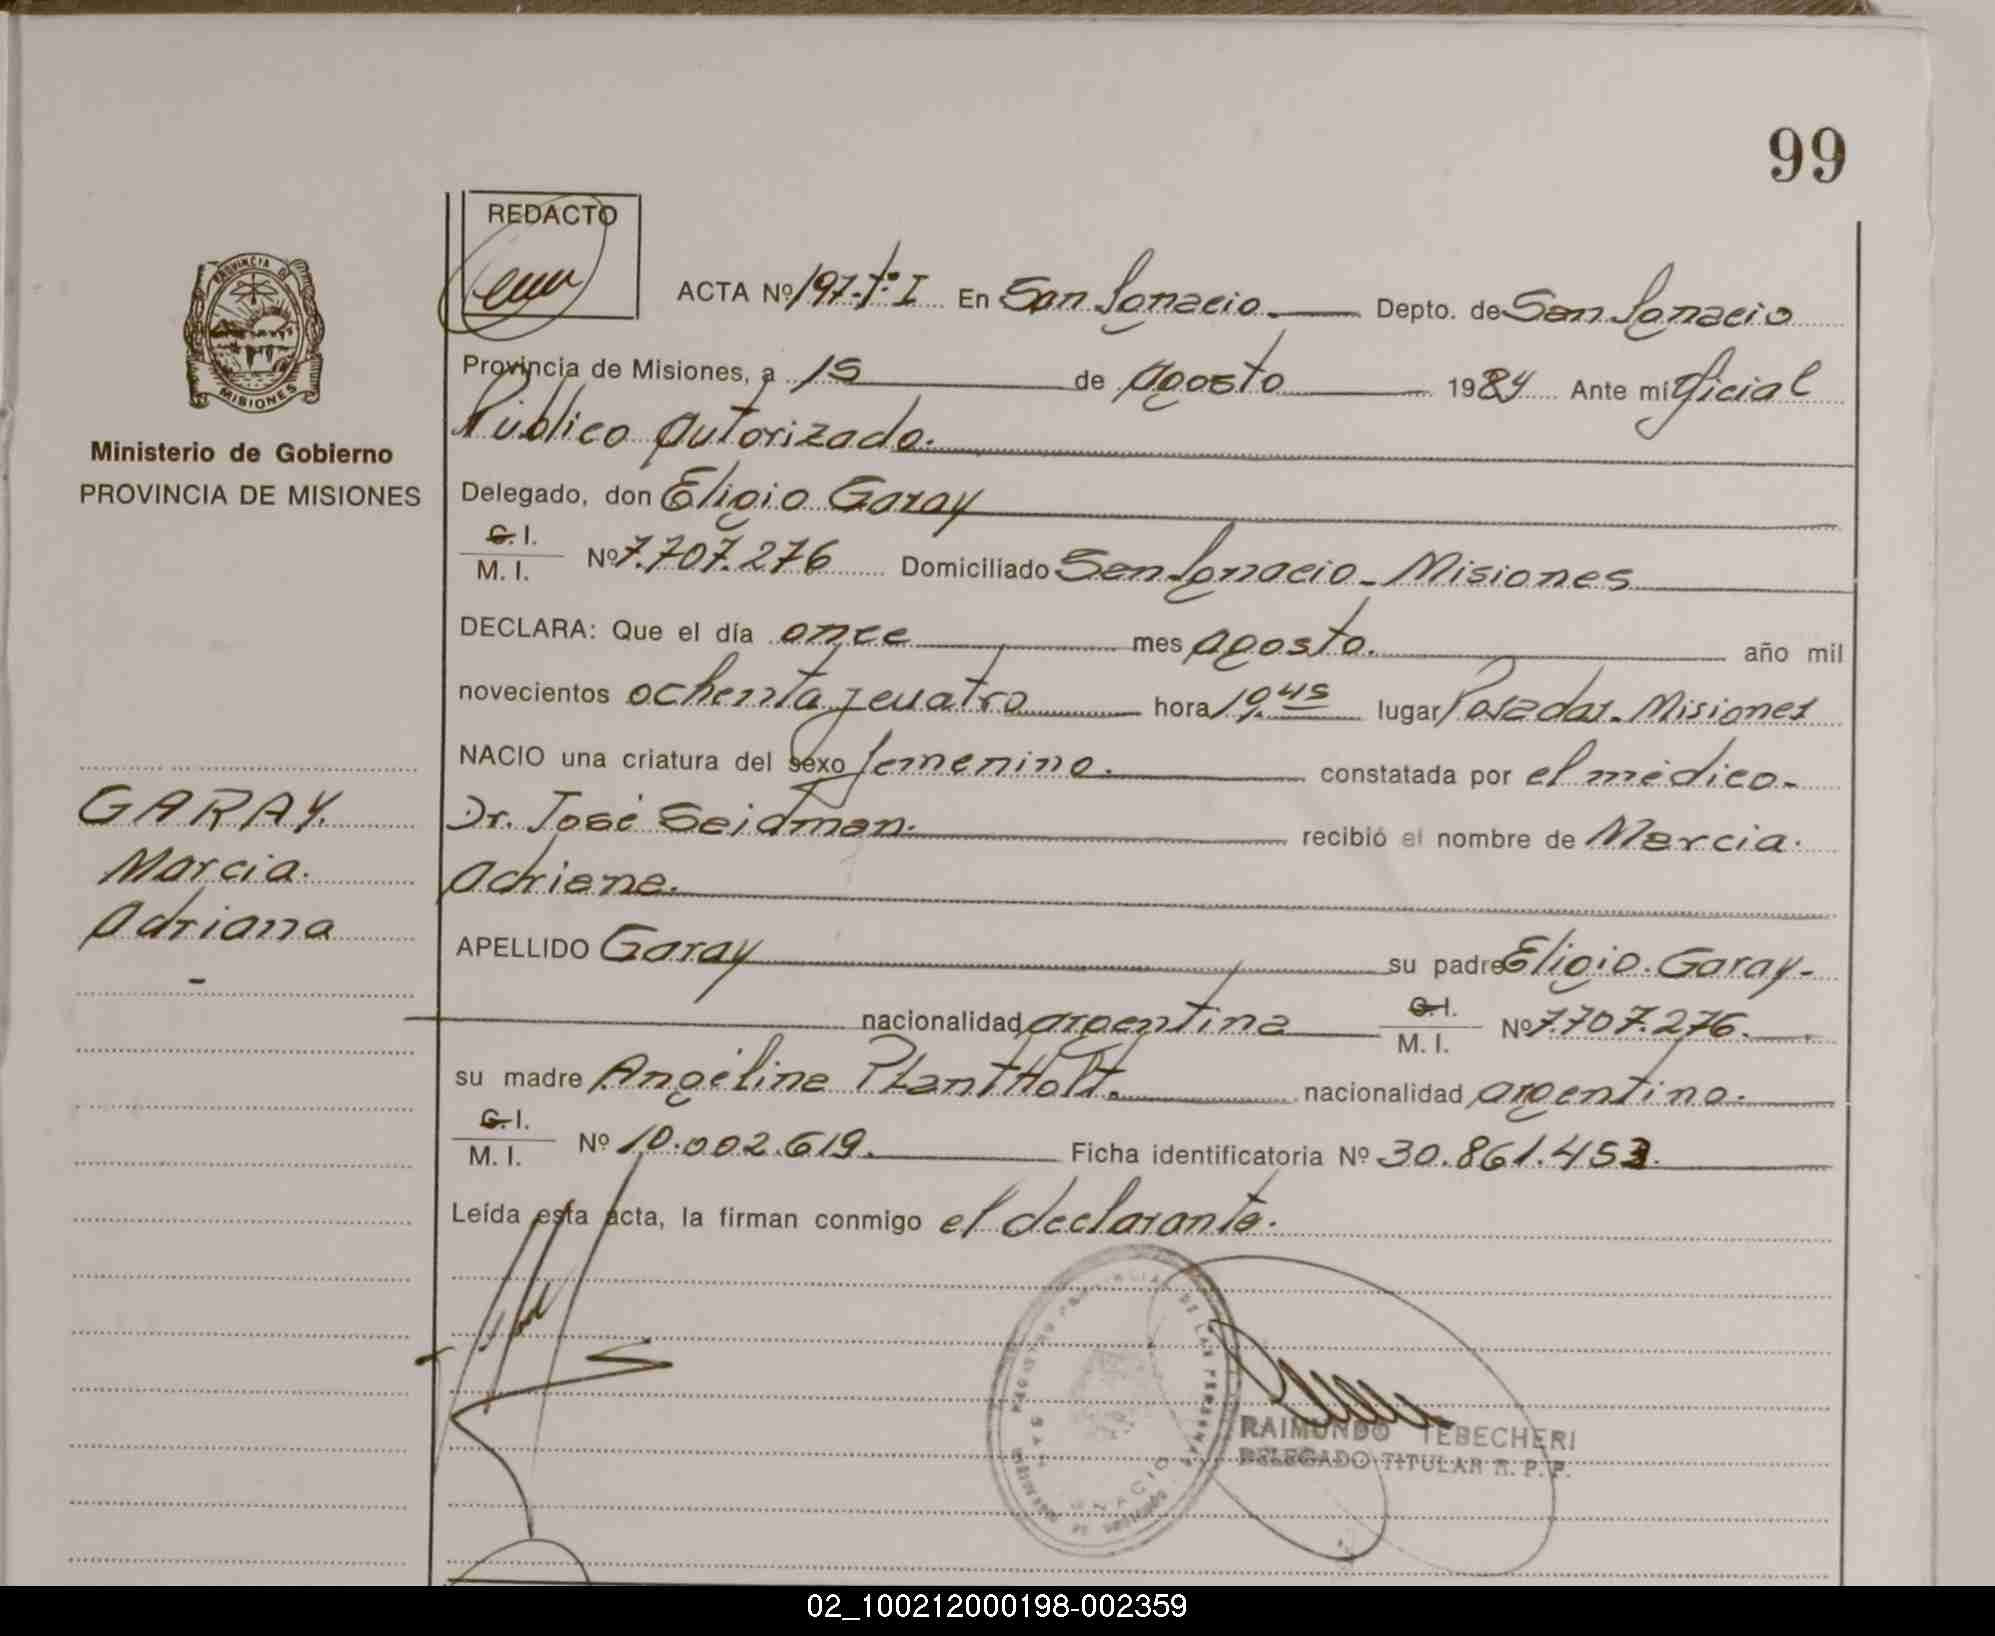 99
REDACTO
PROVINCIA DE
MISIONES
Ministerio de Gobierno
PROVINCIA DE MISIONES
ACTA Nº 197-Tº I En San Ignacio Depto. de San Ignacio
Provincia de Misiones, a 15 de agosto 1984 Ante mí oficial
Público autorizado.
Delegado, don Eligio Garay
C. I.
M. I. Nº 7.707.276 Domiciliado San Ignacio - Misiones
DECLARA: Que el día once mes agosto. año mil
novecientos ochenta y cuatro hora 19,45 lugar Posadas - Misiones
NACIO una criatura del sexo femenino. constatada por el médico-
Dr. José Seidman. recibió el nombre de Marcia.
Adriana.
GARAY.
Marcia.
Adriana
-
APELLIDO Garay su padre Eligio Garay-
nacionalidad argentina C. I.
M. I. Nº 7.707.276.
su madre Angélina Plantholt. nacionalidad argentina.
C. I.
M. I. Nº 10.002.619. Ficha identificatoria Nº 30.861.453.
Leída esta acta, la firman conmigo el declarante.
RAIMUNDO TEBECHERI
DELEGADO TITULAR R. P. P.
02_100212000198-002359